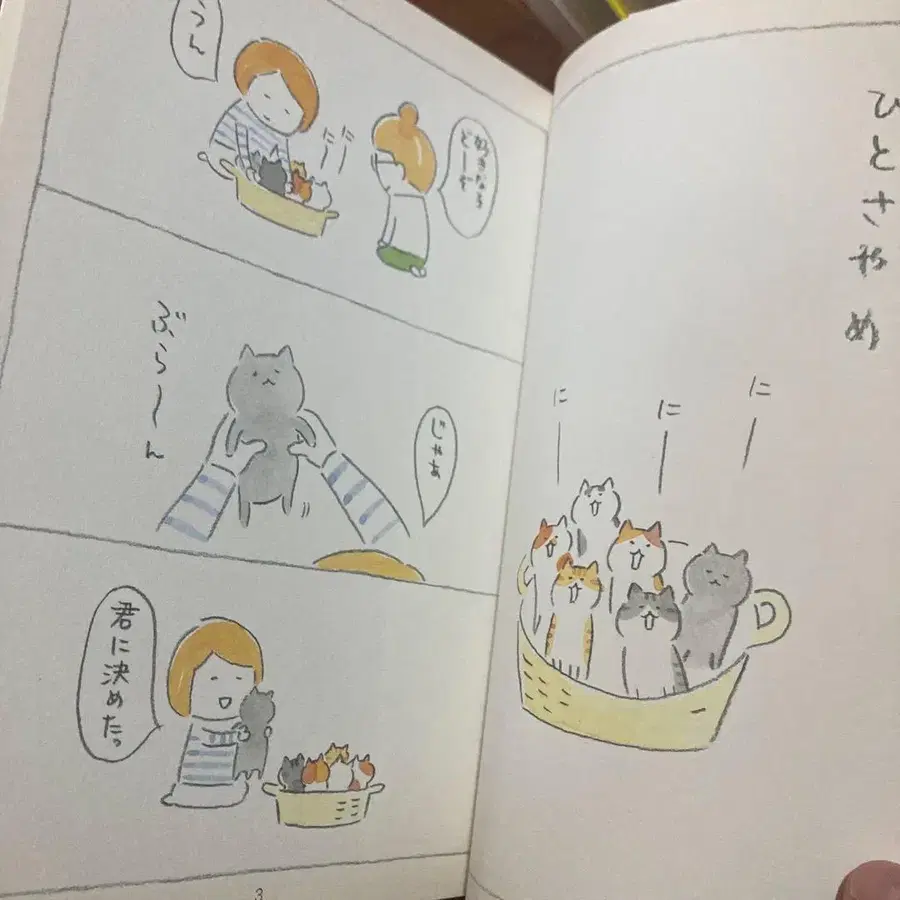 にー
にー
にー
好きな
どーぞ
にーにー
うん
じゃあ
ぶら〜ん
君に決めたっ
3